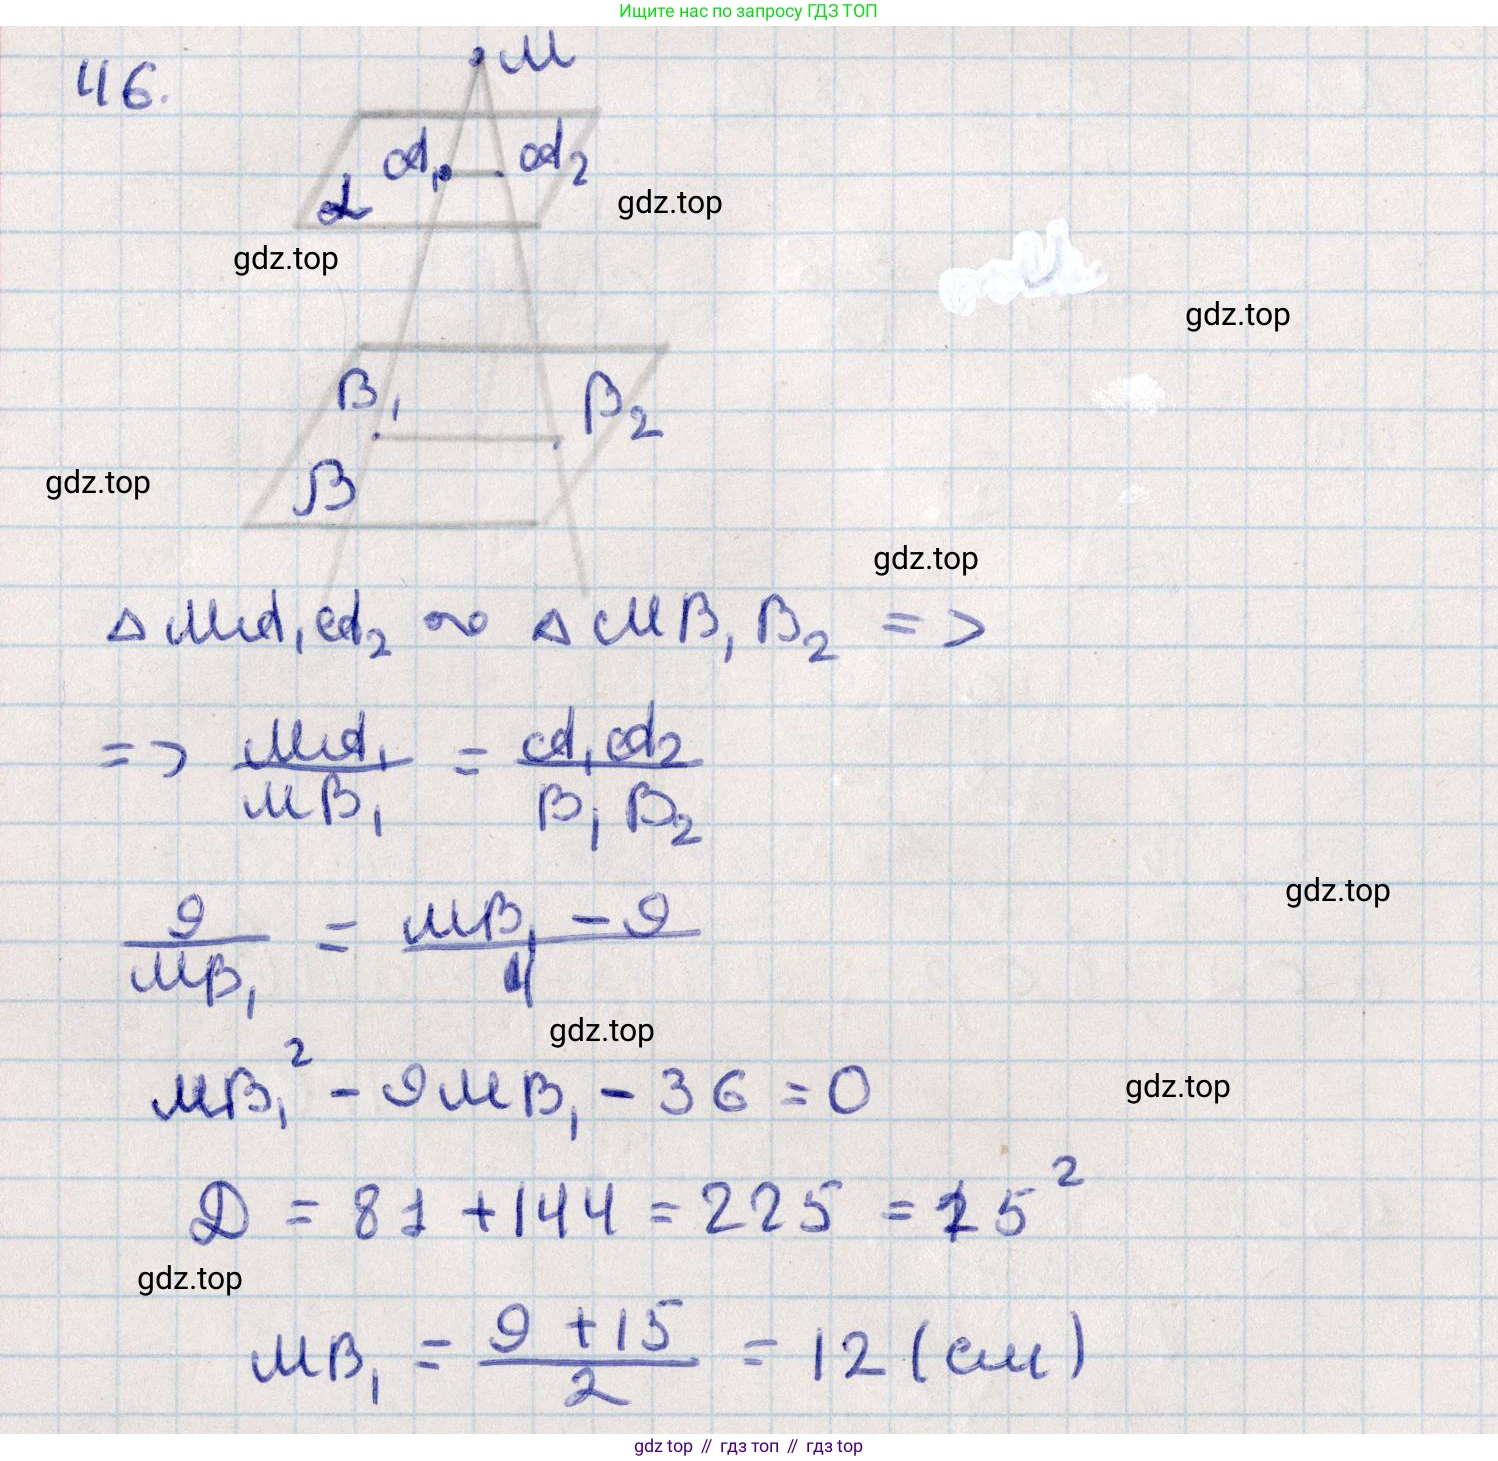 Ищите нас по запросу ГДЗ ТОП
46.
M
A₁ A₂
α
gdz.top
gdz.top
gdz.top
B₁ B₂
β
gdz.top
gdz.top
△MA₁A₂ ∾ △MB₁B₂ =>
=> MA₁/MB₁ = A₁A₂/B₁B₂
gdz.top
9/MB₁ = (MB₁ - 9)/4
gdz.top
MB₁² - 9MB₁ - 36 = 0
gdz.top
D = 81 + 144 = 225 = 15²
gdz.top
MB₁ = (9 + 15)/2 = 12 (см)
gdz top // гдз топ // гдз top